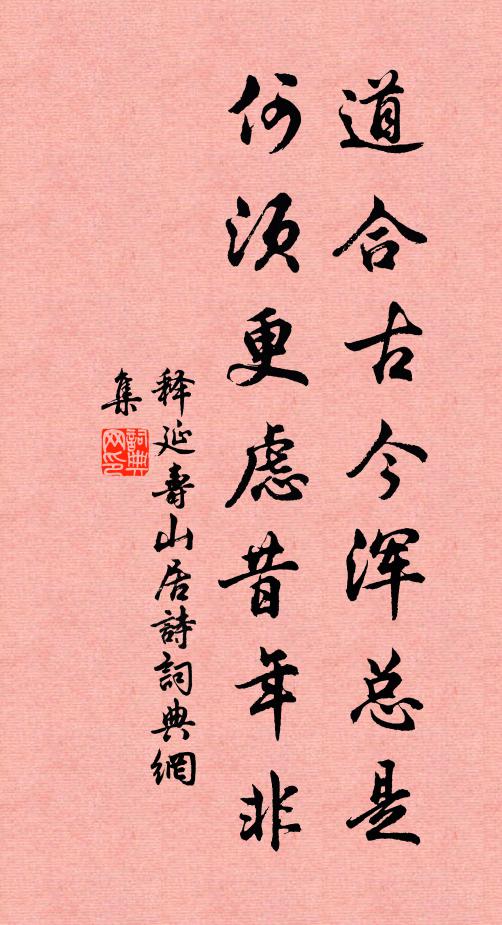 道合古今浑总是
何须更虑昔年非
释延壽山居詩詞典網
集
詞典网印